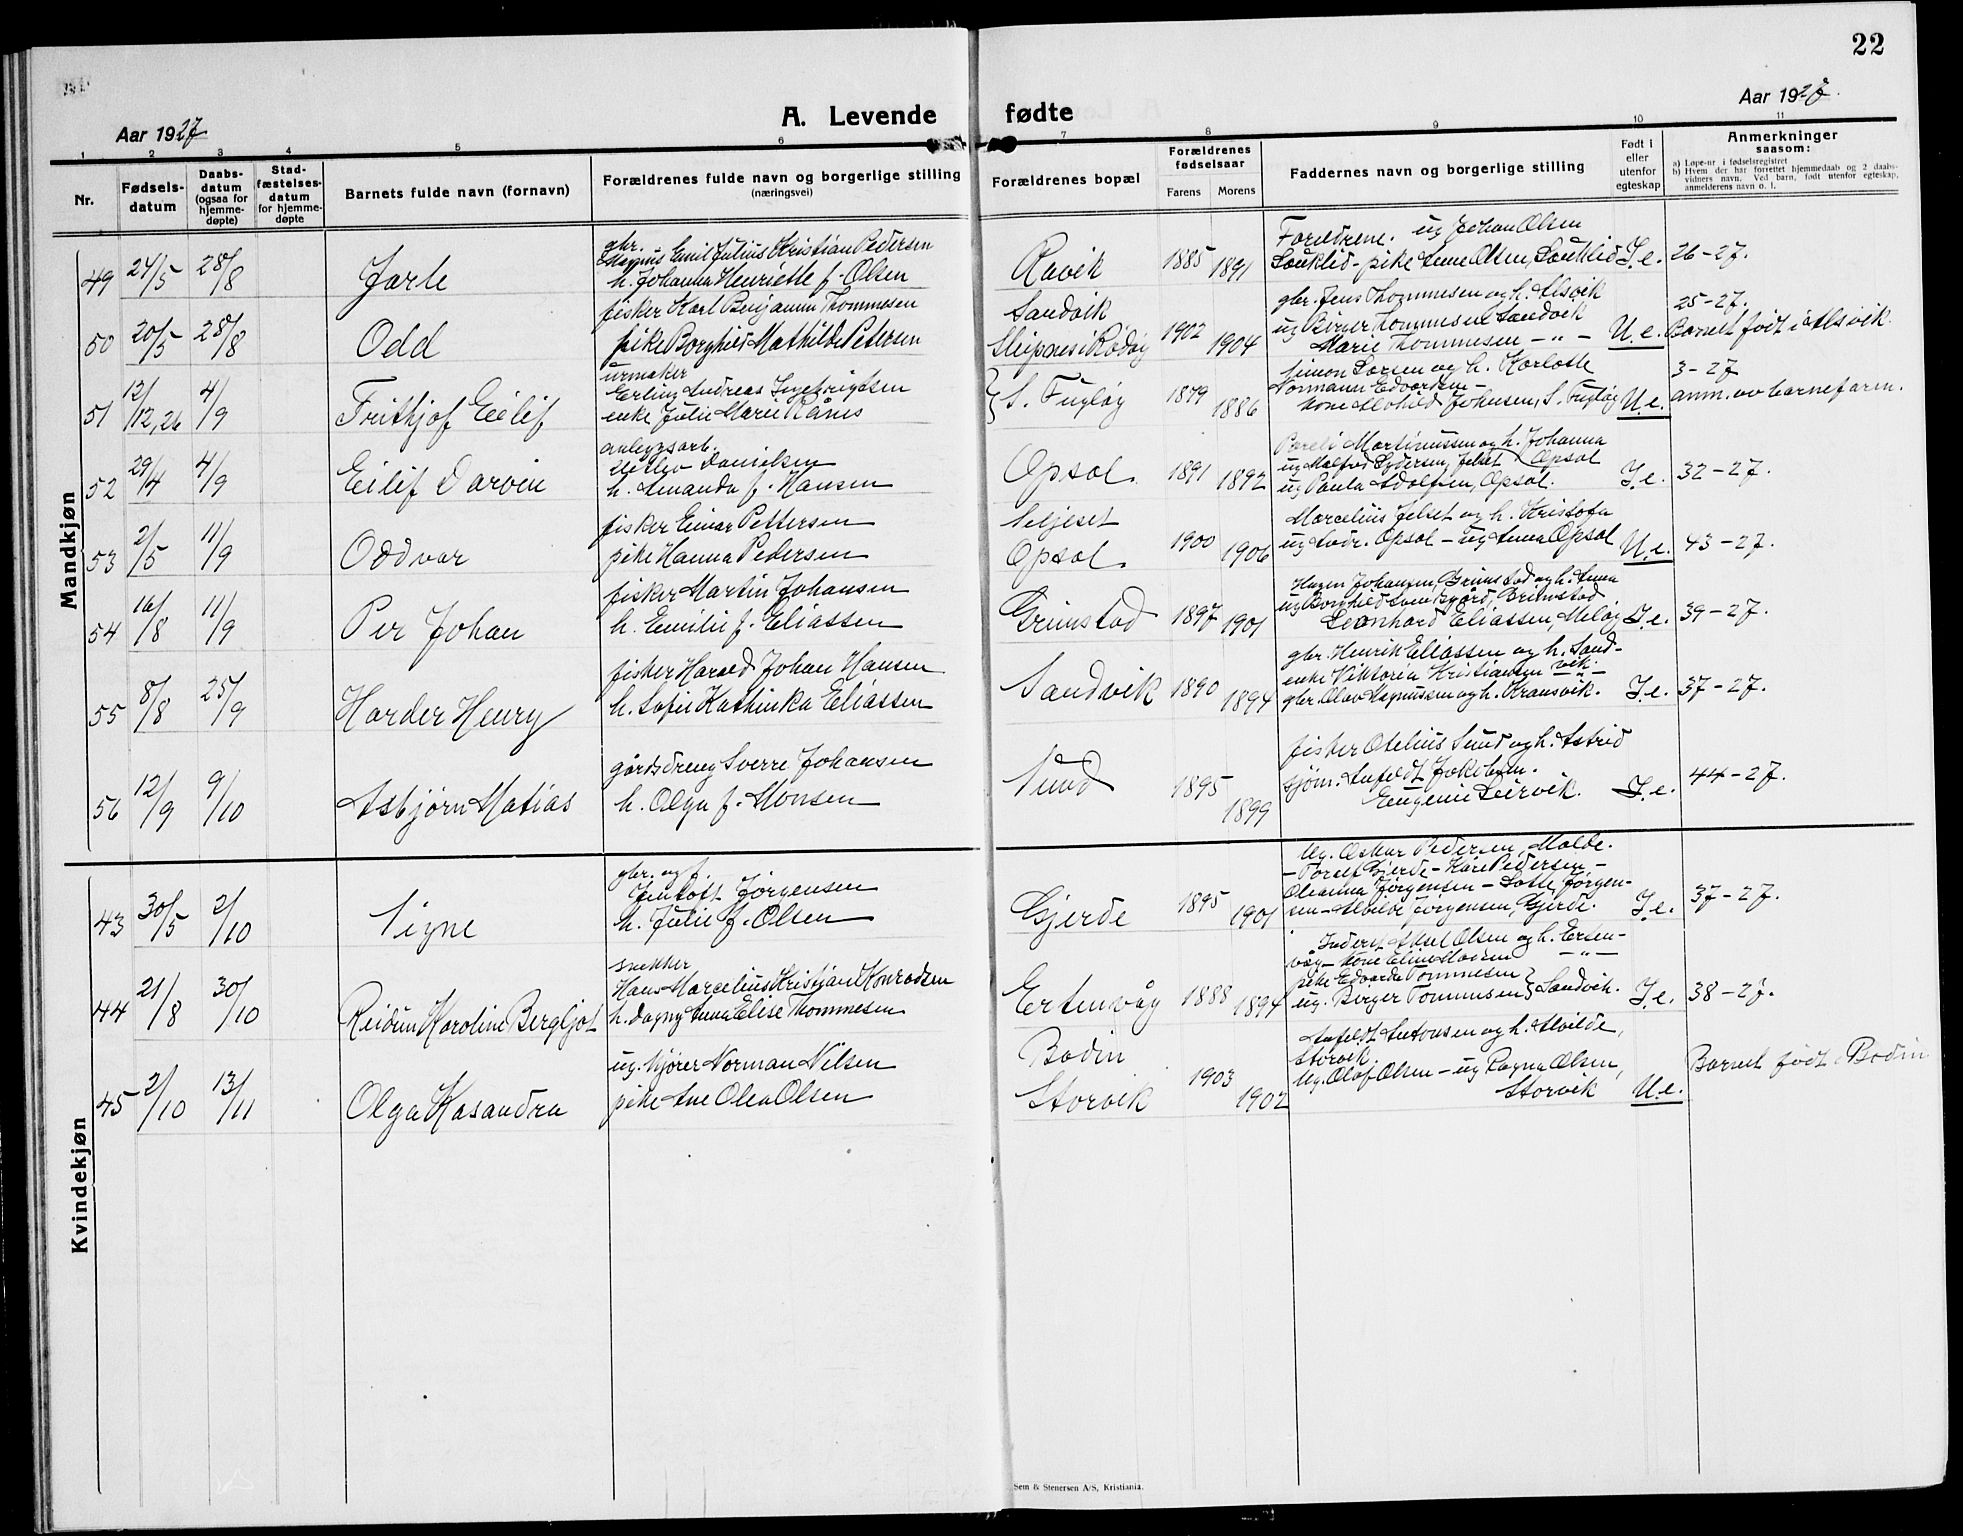 22
Aar 1927
A. Levende fødte
Aar 1927.
1 2 3 4 5 6 7 8 9 10 11
Nr.
Fødsels-datum
Daabs-datum (ogsaa for hjemme-døpte)
Stad-fæstelses-datum for hjemme-døpte
Barnets fulde navn (fornavn)
Forældrenes fulde navn og borgerlige stilling
(næringsvei)
Forældrenes bopæl
Forældrenes fødselsaar
Farens Morens
Faddernes navn og borgerlige stilling
Født i eller utenfor egteskap
Anmerkninger
saasom:
a) Løpe-nr i fødselsregistret
b) Hvem der har forrettet hjemmedaab og 2 daabs-
vidners navn. Ved barn, født utenfor egteskap,
anmelderens navn o. l.
Mandkjøn
49 24/5 28/8 Jarle
gbr.
Magnus Emil Julius Kristian Pedersen
h. Johanna Henriette f. Olsen
Ravik 1885 1891
Forældrene. ug Johan Olsen
pike Anne Olsen,
I.e. 26-27.
50 20/5 28/8 Odd
fisker Karl Benjamin Thommesen
pike Borghild Mathilde Petersen
Sandvik
Sleipnes i Rödöy 1902 1904
gbr. Jens Thommesen og h. Alsvik
ug Birger Thommesen Sandvik
Marie Thommesen - " -
U.e. 25-27.
Barnet født i Alsvik.
51 12/12,26 4/9 Frithjof Eilif
urmaker
Erling Andreas Ingebrigtsen
enke Julie Marie Rånes
S. Fugløy 1879 1886
Simon Larsen og h. Karlotte
Normann Edvardsen -
kone Johnsen, S. Fugløy
U.e. 3-27
anm. av barnefaren.
52 29/4 4/9 Eilif Darvin
anleggsarb.
Danielsen
h. Amanda f. Hansen
Opsal. 1891 1892
Martinussen og h. Johanna
ug Paula Adolfsen, Opsal.
I.e. 32-27.
53 2/5 11/9 Oddvar
fisker Einar Pettersen
pike Hanna Pedersen
Seljeset
Opsal. 1900 1906
Marcelius Jelset og h. Kristofa
ug Andr. Opsal - ug Anna Opsal
U.e. 43-27.
54 16/8 11/9 Per Johan
fisker Martin Johansen
h. Emilie f. Eliassen
Grimstad 1897 1901
Hagen Johansen, Grimstad og h. Anna
Leonhard Eliassen, Meløy
I.e. 39-27.
55 8/8 25/9 Harder Henry
fisker Harald Johan Hansen
h. Sofie Kathinka Eliassen
Sandvik 1890 1894
gbr. Henrik Eliassen og h. Sand-
enke Viktoria Kristiansen vik.
gbr. Olav Magnussen og h. Kransvik.
I.e. 37-27.
56 12/9 9/10 Asbjørn Matias
gårdsdreng Sverre Johansen
h. Olga f. Monsen
Sund 1895 1899
fisker Otelius Sund og h. Astrid
sjøm. Anfeldt Jakobsen.
Eugenie Leirvik.
I.e. 44-27.
Kvindekjøn
43 30/5 2/10 Signe
gbr. og f.
Jentoft Jörgensen
h. Julie f. Olsen
Gjerde 1895 1901
Ug. Oskar Pedersen, Molde.
- Toralf Gjerde - Kåre Pedersen -
Oleanna Jörgensen - Lotte Jörgen-
sen - Alvilde Jörgensen, Gjerde.
I.e. 37-27.
44 21/8 30/10 Reidun Karoline Bergljot
snekker
Hans Marcelius Kristian Konradsen
h. Dagny Anna Elise Thommesen
Ertenvåg 1888 1894
Inderst Aksel Olsen og h. Erten-
våg - kone Eline - " -
pike Edvarda Tommesen
ug. Birger Tommesen } Sandvik.
I.e. 38-27.
45 2/10 13/11 Olga Kasandra
ug. kjörer Norman Nilsen
pike Ane Olea Olsen
Bodin
Storvik 1903 1902
Anfeldt Antonsen og h. Alvilde,
Storvik.
Ug. Olaf Olsen - ug Ragna Olsen,
Storvik
U.e. Barnet født i Bodin
Sem & Stenersen A/S, Kristiania.